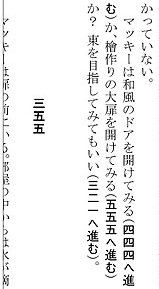 かっていない。
　マッキーは和風のドアを開けてみる(四四四へ進
む)か、檜作りの大扉を開けてみる(五五五へ進む)
か? 東を目指してみてもいい(三二一へ進む)。
三五五
　マッキーは扉の前にいる。部屋の中からは水が滴